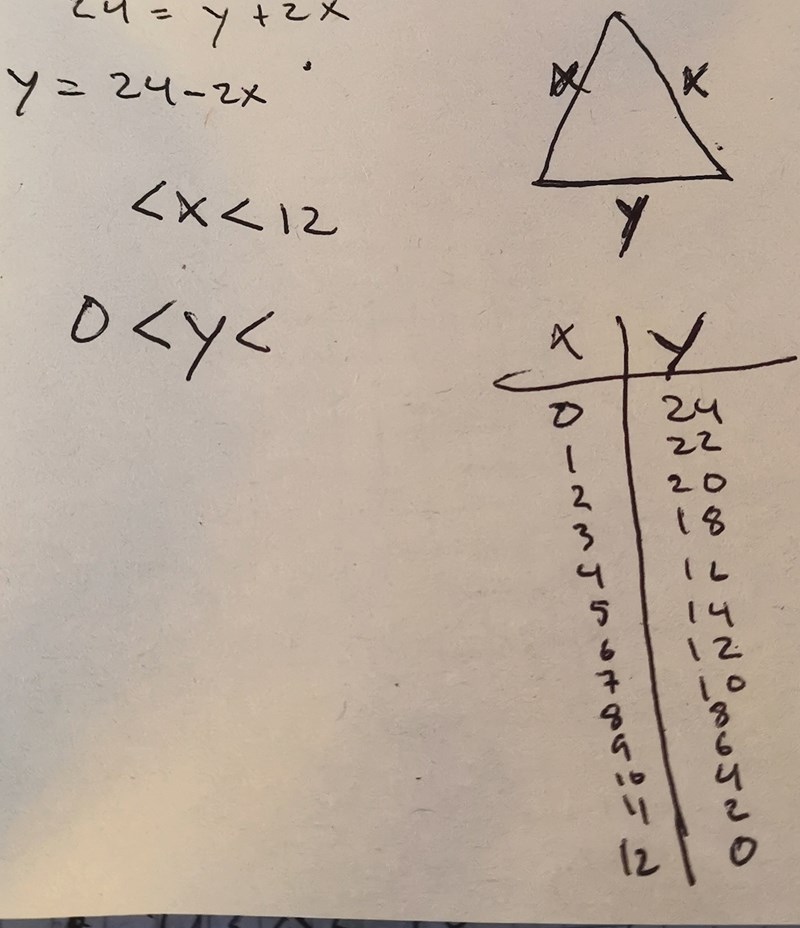 24 = y + 2x
y = 24 - 2x
< x < 12
0 < y <
x x
y
x y
0 24
1 22
2 20
3 18
4 16
5 14
6 12
7 10
8 8
9 6
10 4
11 2
12 0